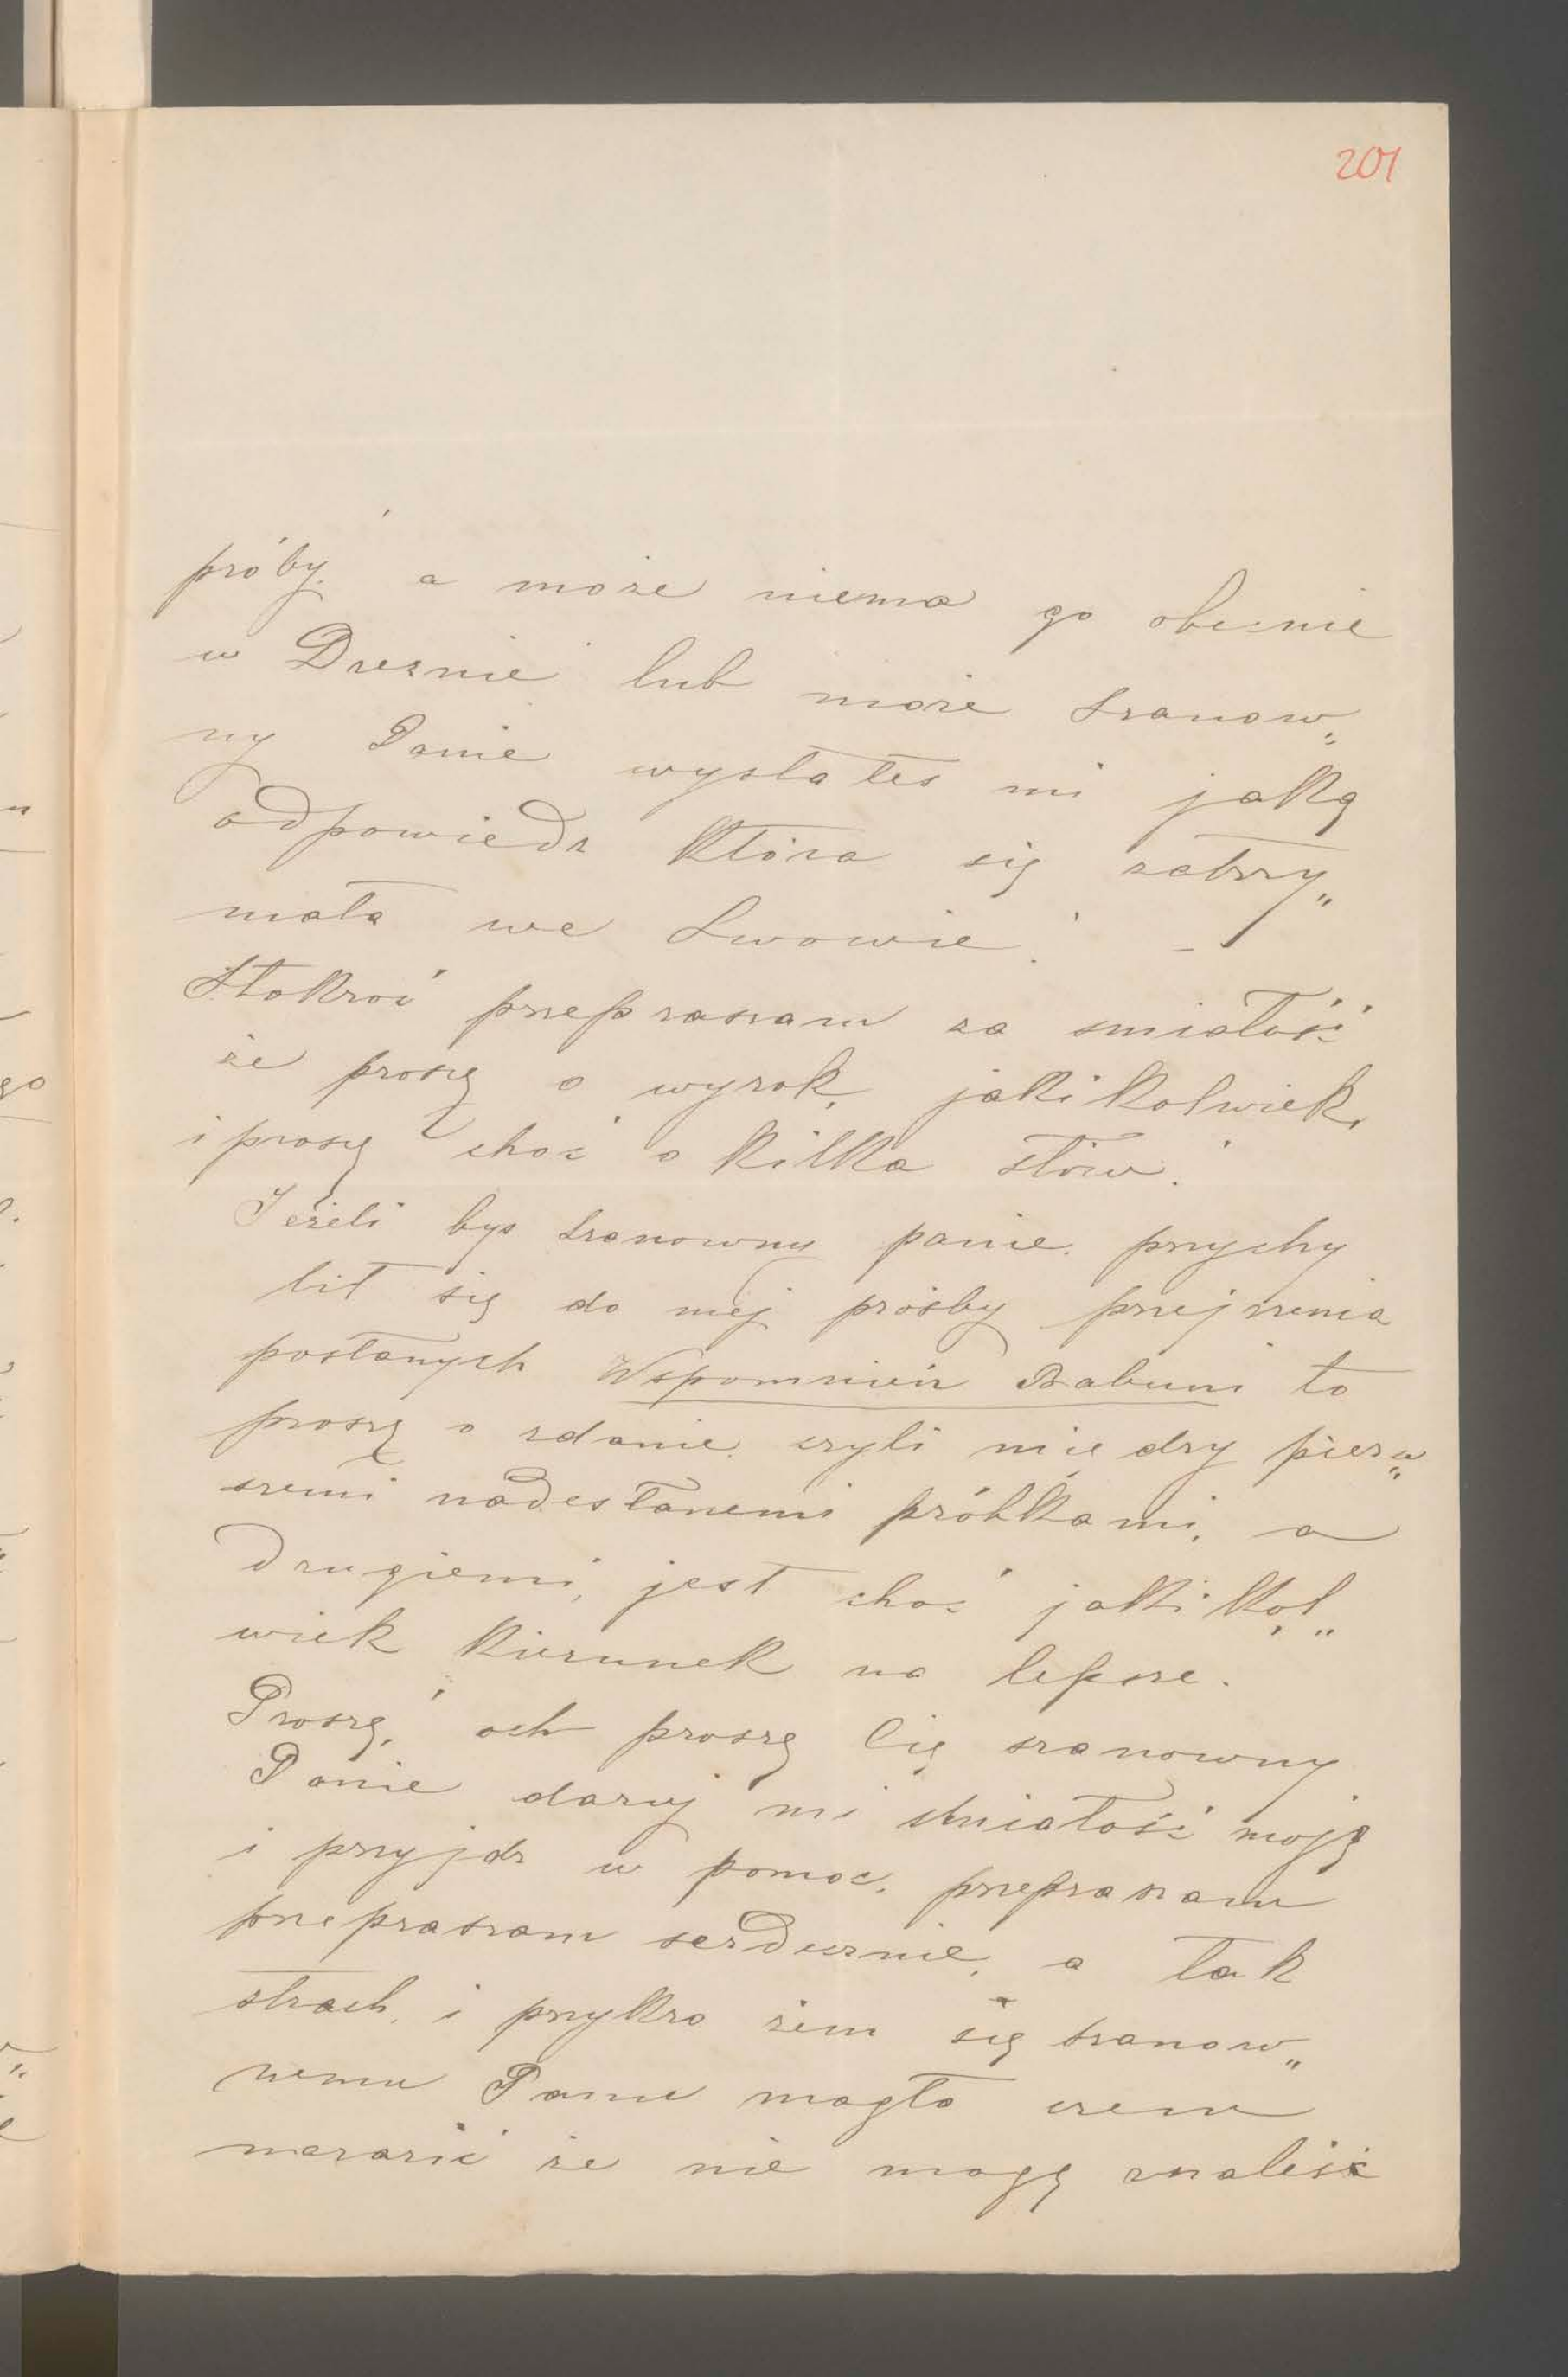 201
próby, a może niema go obecnie
w Dreznie lub może szanow„
ny Panie wysłałes mi jaką
odpowiedz która się zatrzy„
mała we Lwowie! –
Stokroć przepraszam za smiałość
że proszę o wyrok, jakikolwiek,
i proszę choć o kilka słów!
Jeżeli bys szanowny panie przychy
lił się do mej prośby przejrzenia
posłanych Wspomnień Babuni to
proszę o zdanie, czyli miedzy pierw„
szemi nadesłanemi próbkami, a
drugiemi, jest choć jakikol„
wiek kierunek na lepsze.
Proszę, och proszę Cię szanowny
Panie daruj mi śmiałość moję
i przyjdz w pomoc, przepraszam
przepraszam serdecznie, a tak
strach, i przykro żem się szanow„
nemu Panu mogła czem
narazić że nie mogę znaleść